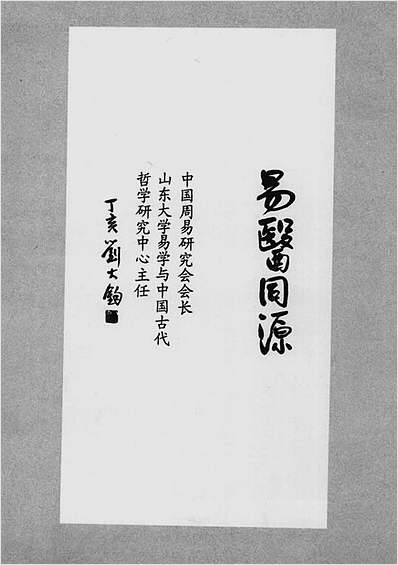 易醫同源
中国周易研究会会长
山东大学易学与中国古代
哲学研究中心主任
丁亥 劉大鈞